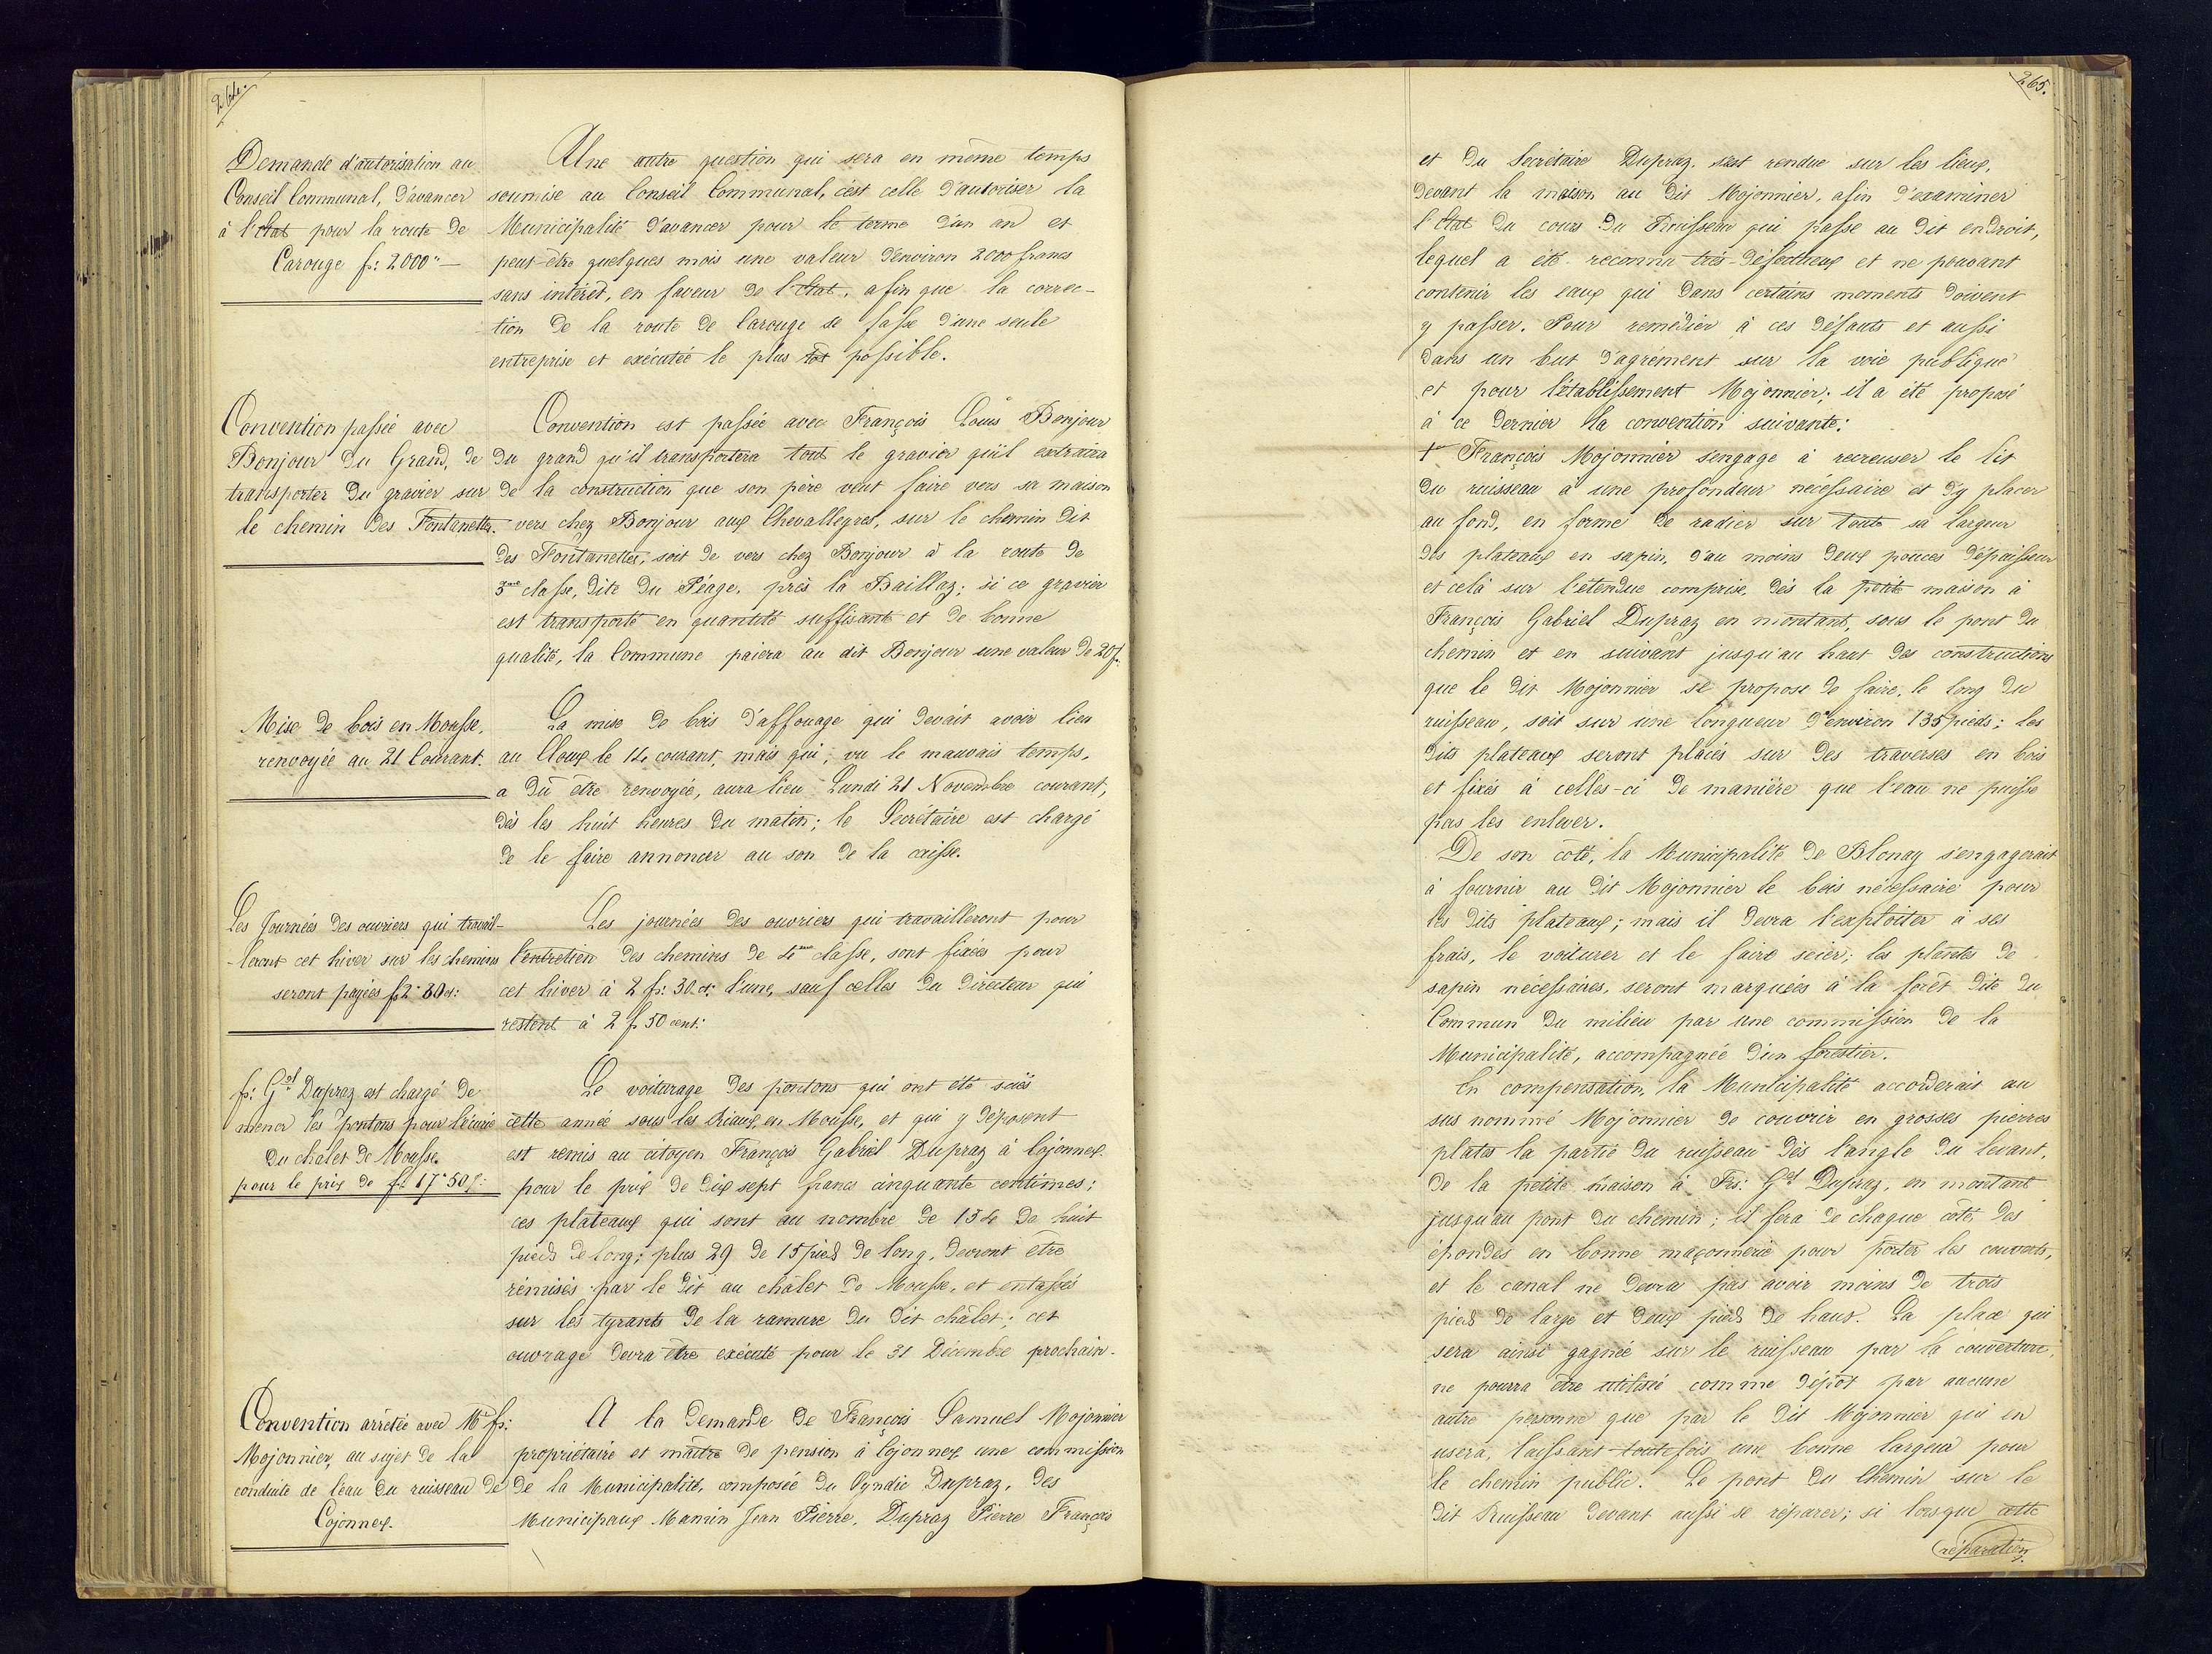 264.
Demande d'autorisation au
Conseil Communal, d'avancer
à l'Etat pour la route de
Carouge fr: 2000"—
Une autre question qui sera en même temps
soumise au Conseil Communal, c'est celle d'autoriser la
Municipalité d'avancer pour le terme d'un an et
peut-être quelques mois une valeur d'environ 2000 francs
sans intérêt, en faveur de l'Etat, afin que la correc-
tion de la route de Carouge se fasse d'une seule
entreprise et exécutée le plus tôt possible.
Convention passée avec
Bonjour du Grand, de
transporter du gravier sur
le chemin des Fontanettes.
Convention est passée avec François Louis Bonjour
du grand qu'il transportera tout le gravier qu'il extraira
de la construction que son père veut faire vers sa maison
vers chez Bonjour aux Chevallegres, sur le chemin dit
des Fontanettes, soit de vers chez Bonjour à la route de
3me classe, dite du Péage, près la Baillaz; si ce gravier
est transporté en quantité suffisante et de bonne
qualité, la Commune paiera au dit Bonjour une valeur de 20 f:
Mise de bois en Mousse,
renvoyée au 21 Courant.
La mise de bois d'affouage qui devait avoir lieu
au Cloux le 14 courant, mais qui, vu le mauvais temps,
a dû être renvoyée, aura lieu Lundi 21 Novembre courant,
dès les huit heures du matin; le Secrétaire est chargé
de le faire annoncer au son de la caisse.
Les Journées des ouvriers qui travail-
-leront cet hiver sur les chemins
seront payées f 2" 30 ct:
Les journées des ouvriers qui travailleront pour
l'entretien des chemins de 4me classe, sont fixées pour
cet hiver à 2 fr: 30 ct: l'une, sauf celles du Directeur qui
restent à 2 fr 50 cent:
fr: Gel Dupraz est chargé de
mener les pontons pour l'écurie
du châlet de Mousse.
pour le prix de fr: 17" 50 f:
Le voiturage des pontons qui ont été sciés
cette année sous les Riaux en Mousse, et qui y déposent
est remis au citoyen François Gabriel Dupraz à Cojonnex
pour le prix de dix sept francs cinquante centimes;
ces plateaux qui sont au nombre de 154 de huit
pieds de long; plus 29 de 15 pieds de long, devront être
rémisés par le dit au châlet de Mousse, et entassés
sur les tyrants de la ramure du dit châlet; cet
ouvrage devra être exécuté pour le 31 Décembre prochain.
Convention arrêtée avec Mr fr:
Mojonnier, au sujet de la
conduite de l'eau du ruisseau de
Cojonnex.
A la demande de François Samuel Mojonnier
propriétaire et maître de pension à Cojonnex une commission
de la Municipalité, composée du Syndic Dupraz, des
Municipaux Mamin Jean Pierre, Dupraz Pierre François
265.
et du Secrétaire Dupraz, s'est rendue sur les lieux,
devant la maison au dit Mojonnier, afin d'examiner
l'état du cours du Ruisseau qui passe au dit endroit,
lequel a été reconnu très-défectueux et ne pouvant
contenir les eaux qui dans certains moments doivent
y passer. Pour remédier à ces défauts et aussi
dans un but d'agrément sur la voie publique
et pour l'établissement Mojonnier; il a été proposé
à ce dernier la convention suivante:
François Mojonnier s'engage à recreuser le lit
du ruisseau à une profondeur nécessaire et d'y placer
au fond, en forme de radier sur toute sa largeur
des plateaux en sapin, d'au moins deux pouces d'épaisseur
et celà sur l'étendue comprise, dès la petite maison à
François Gabriel Dupraz en montant, sous le pont du
chemin et en suivant jusqu'au haut des constructions
que le dit Mojonnier se propose de faire, le long du
ruisseau, soit sur une longueur d'environ 135 pieds; les
dits plateaux seront placés sur des traverses en bois
et fixés à celles-ci de manière que l'eau ne puisse
pas les enlever.
De son côté, la Municipalité de Blonay s'engagerait
à fournir au dit Mojonnier le bois nécessaire pour
les dits plateaux; mais il devra l'exploiter à ses
frais, le voiturer et le faire scier; les plantes de
sapin nécessaires, seront marquées à la forêt dite du
Commun du milieu par une commission de la
Municipalité, accompagnée d'un forestier.
En compensation, la Municipalité accorderait au
sus nommé Mojonnier de couvrir en grosses pierres
plates la partie du ruisseau dès l'angle du levant,
de la petite maison à Frs: Gel Dupraz, en montant
jusqu'au pont du chemin; il fera de chaque côté des
épondes en bonne maçonnerie pour porter les couverts,
et le canal ne devra pas avoir moins de trois
pieds de large et deux pieds de haut. La place qui
sera ainsi gagnée sur le ruisseau par la couverture,
ne pourra être utilisée comme dépôt par aucune
autre personne que par le dit Mojonnier qui en
usera, laissant toutefois une bonne largeur pour
le chemin public. Le pont du Chemin sur le
dit Ruisseau devant aussi se réparer; si lorsque cette
réparation,